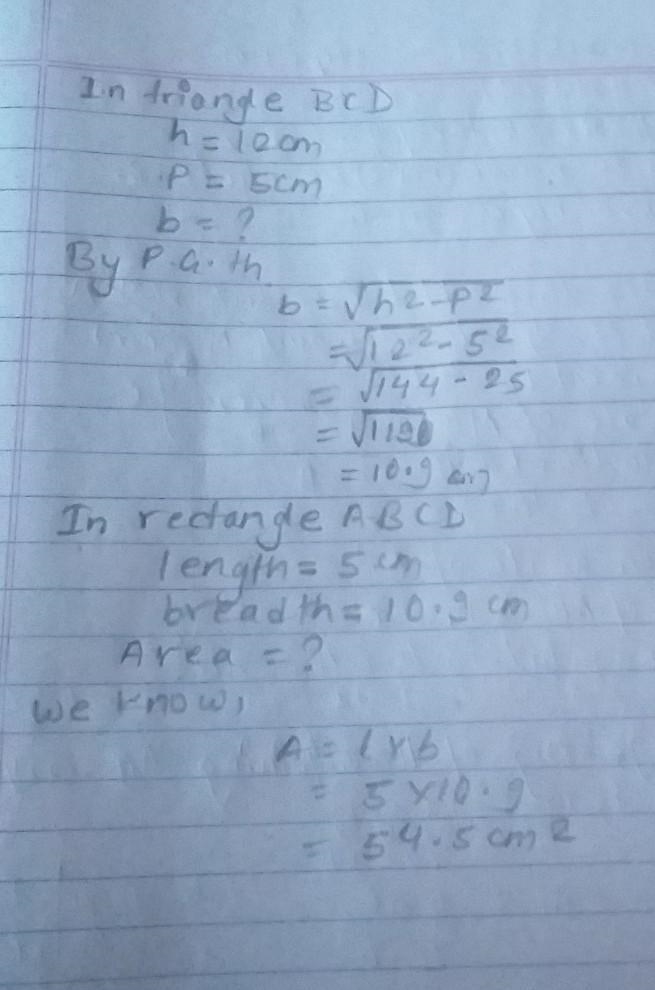 In triangle BCD
h = 12cm
P = 5cm
b = ?
By P.G.th
b = √h2-P2
= √12²- 5²
= √144 - 25
= √119
= 10.9 cm
In rectangle ABCD
length = 5 cm
breadth = 10.9 cm
Area = ?
We know,
A = l x b
= 5 x 10.9
= 54.5 cm2